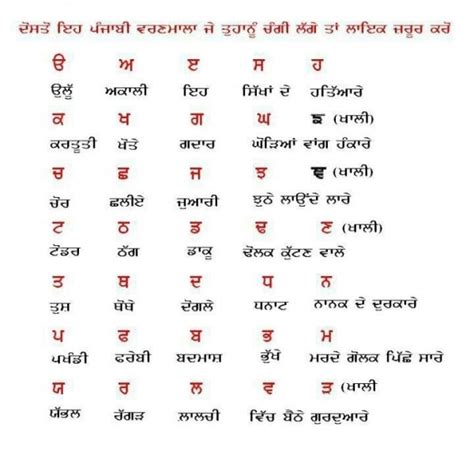 ਦੋਸਤੋਂ ਇਹ ਪੰਜਾਬੀ ਵਰਣਮਾਲਾ ਜੇ ਤੁਹਾਨੂੰ ਚੰਗੀ ਲੱਗੇ ਤਾਂ ਲਾਇਕ ਜ਼ਰੂਰ ਕਰੋਂ
ੳ ਅ ੲ ਸ ਹ
ਉਲੂੱ ਅਕਾਲੀ ਇਹ ਸਿੱਖਾਂ ਦੇ ਹਤਿਆਰੇ
ਕ ਖ ਗ ਘ ਙ (ਖਾਲੀ)
ਕਰਤੂਤੀ ਖੋਤੇ ਗਦਾਰ ਘੋੜਿਆਂ ਵਾਂਗ ਹੰਕਾਰੇ
ਚ ਛ ਜ ਝ ਞ (ਖਾਲੀ)
ਚੋਰ ਛਲੀਏ ਜੁਆਰੀ ਝੂਠੇ ਲਾਉਂਦੇ ਲਾਰੇ
ਟ ਠ ਡ ਢ ਣ (ਖਾਲੀ)
ਟੋਡਰ ਠੱਗ ਡਾਕੂ ਢੋਲਕ ਕੁੱਟਣ ਵਾਲੇ
ਤ ਥ ਦ ਧ ਨ
ਤੁਸ਼ ਥੋਥੇ ਦੋਗਲੇ ਧਨਾਟ ਨਾਨਕ ਦੇ ਦੁਰਕਾਰੇ
ਪ ਫ ਬ ਭ ਮ
ਪਖੰਡੀ ਫਰੇਬੀ ਬਦਮਾਸ਼ ਭੁੱਖੇ ਮਰਦੇ ਗੋਲਕ ਪਿੱਛੇ ਸਾਰੇ
ਯ ਰ ਲ ਵ ੜ (ਖਾਲੀ)
ਯੱਭਲ ਰੰਗੜ ਲਾਲਚੀ ਵਿੱਚ ਬੈਠੇ ਗੁਰਦੁਆਰੇ